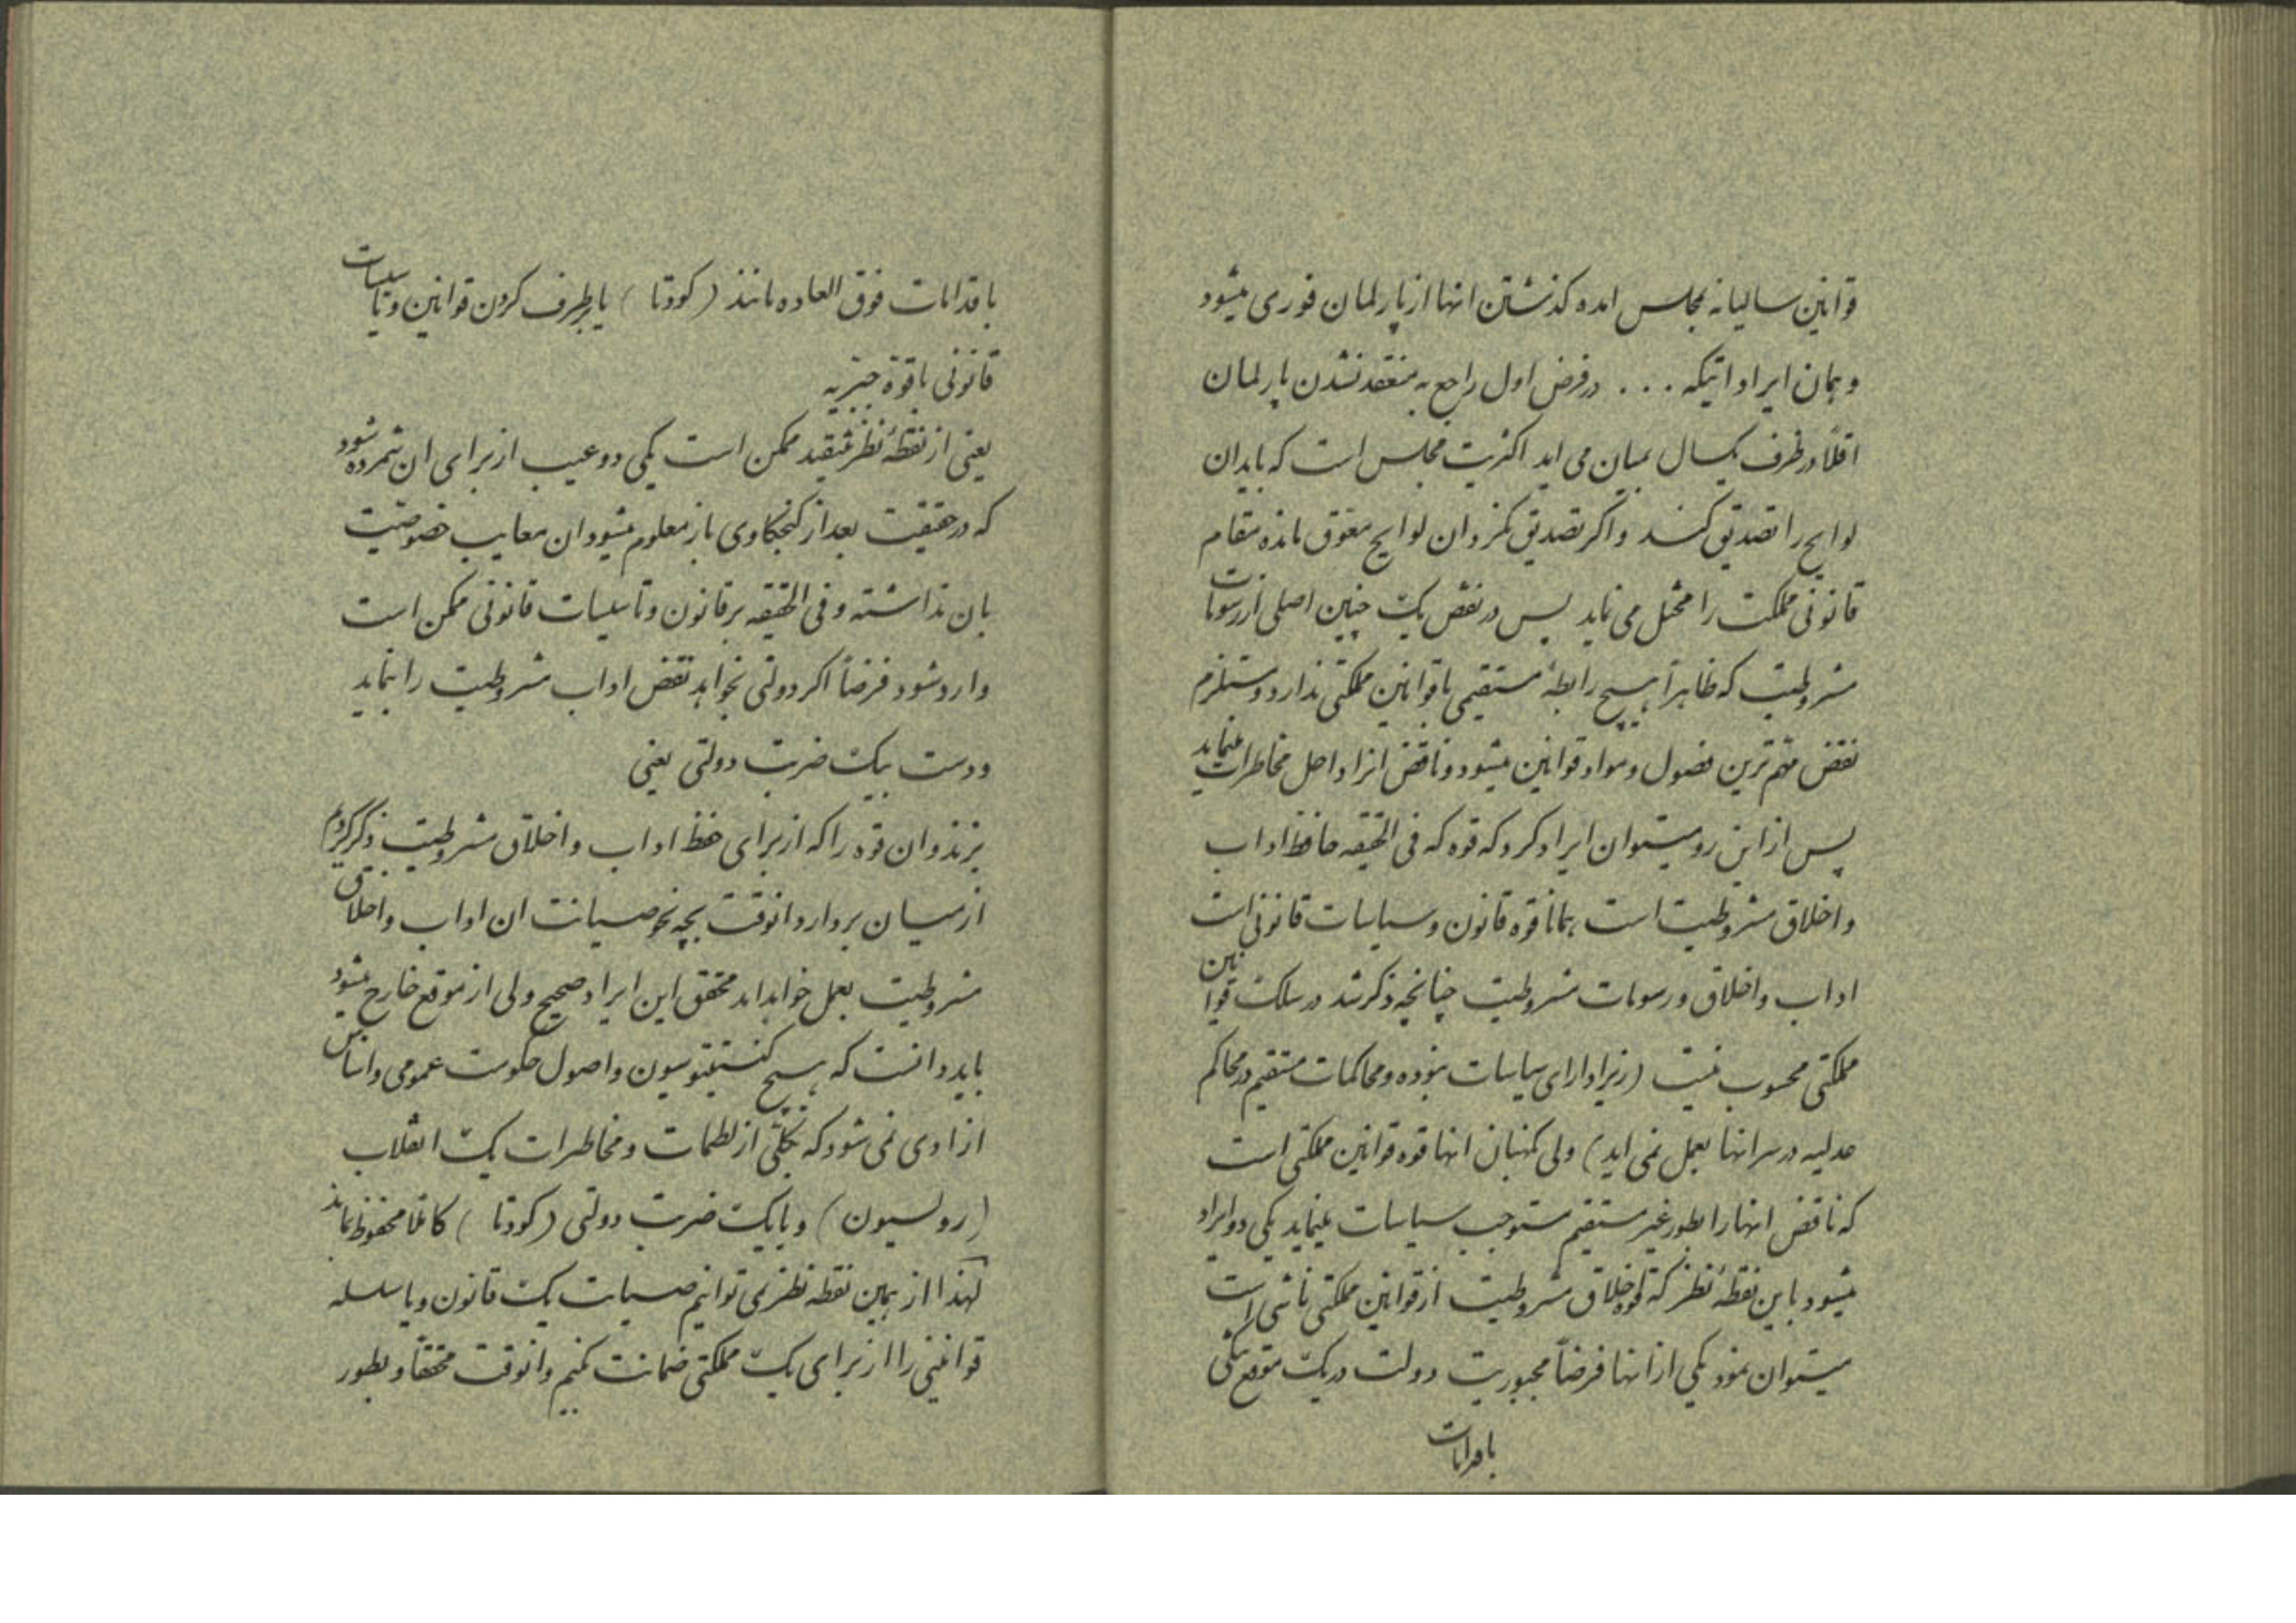 قوانین سالیانه بمجلس امده کذشتن انها از پارلمان فوری میشود
و همان ایراداتیکه ... در فرض اول راجع به منعقد نشدن پارلمان
اقلاً در ظرف یکسال بمیان می اید اکثریت مجلس است که باید ان
لوایح را تصدیق کند و اکر تصدیق نکرد ان لوایح معوق مانده مقام
قانونی مملکت را مختل می نماید پس در نقض یک چنین اصلی از رسومات
مشروطیت که ظاهراً هیچ رابطهٔ مستقیمی با قوانین مملکتی ندارد و مستلزم
نقض مهم ترین فصول و مواد قوانین میشود و ناقض انرا داخل مخاطرات مینماید
پس از این رو میتوان ایراد کرد که قوه که فی الحقیقه حافظ اداب
و اخلاق مشروطیت است همانا قوه قانون و سیاسات قانونی است
اداب و اخلاق و رسومات مشروطیت چنانچه ذکر شد در سلک قوانین
مملکتی محسوب نیست (زیرا دارای سیاسات نبوده و محاکمات مستقیم در محاکم
عدلیه در سر انها بعمل نمی اید) ولی نکهبان انها قوه قوانین مملکتی است
که ناقض انها را بطور غیر مستقیم مستوجب سیاسات مینماید یکی دو ایراد
میشود باین نقطهٔ نظر که قوه اخلاق مشروطیت از قوانین مملکتی ناشی است
میتوان نمود یکی از انها فرضاً مجبوریت دولت در یک موقع تنکی
باقدامات
باقدامات فوق العاده مانند (کودتا) یا برطرف کردن قوانین و تاسیسات
قانونی با قوهٔ جبریه
یعنی از نقطهٔ نظر تنقید ممکن است یکی دو عیب از برای ان شمرده شود
که در حقیقت بعد از کنجکاوی باز معلوم میشود ان معایب خصوصیت
بان نداشته و فی الحقیقه بر قانون و تاسیسات قانونی ممکن است
وارد شود فرضاً اکر دولتی بخواهد نقض اداب مشروطیت را بنماید
و دست بیک ضربت دولتی یعنی
بزند و ان قوه را که از برای حفظ اداب و اخلاق مشروطیت ذکر کردیم
از میان بردارد انوقت بچه نحو صیانت ان اداب و اخلاق
مشروطیت بعمل خواهد امد محقق این ایراد صحیح ولی از موقع خارج میشود
باید دانست که هیچ کنستیتوسیون و اصول حکومت عمومی و اساس
ازادی نمی شود که بکلی از لطمات و مخاطرات یک انقلاب
(رولسیون) و یا یک ضربت دولتی (کودتا) کاملا محفوظ بماند
لهذا از همین نقطه نظر نمی توانیم صیانت یک قانون و یا سلسله
قوانینی را از برای یک مملکتی ضمانت کنیم و انوقت محققاً و بطور